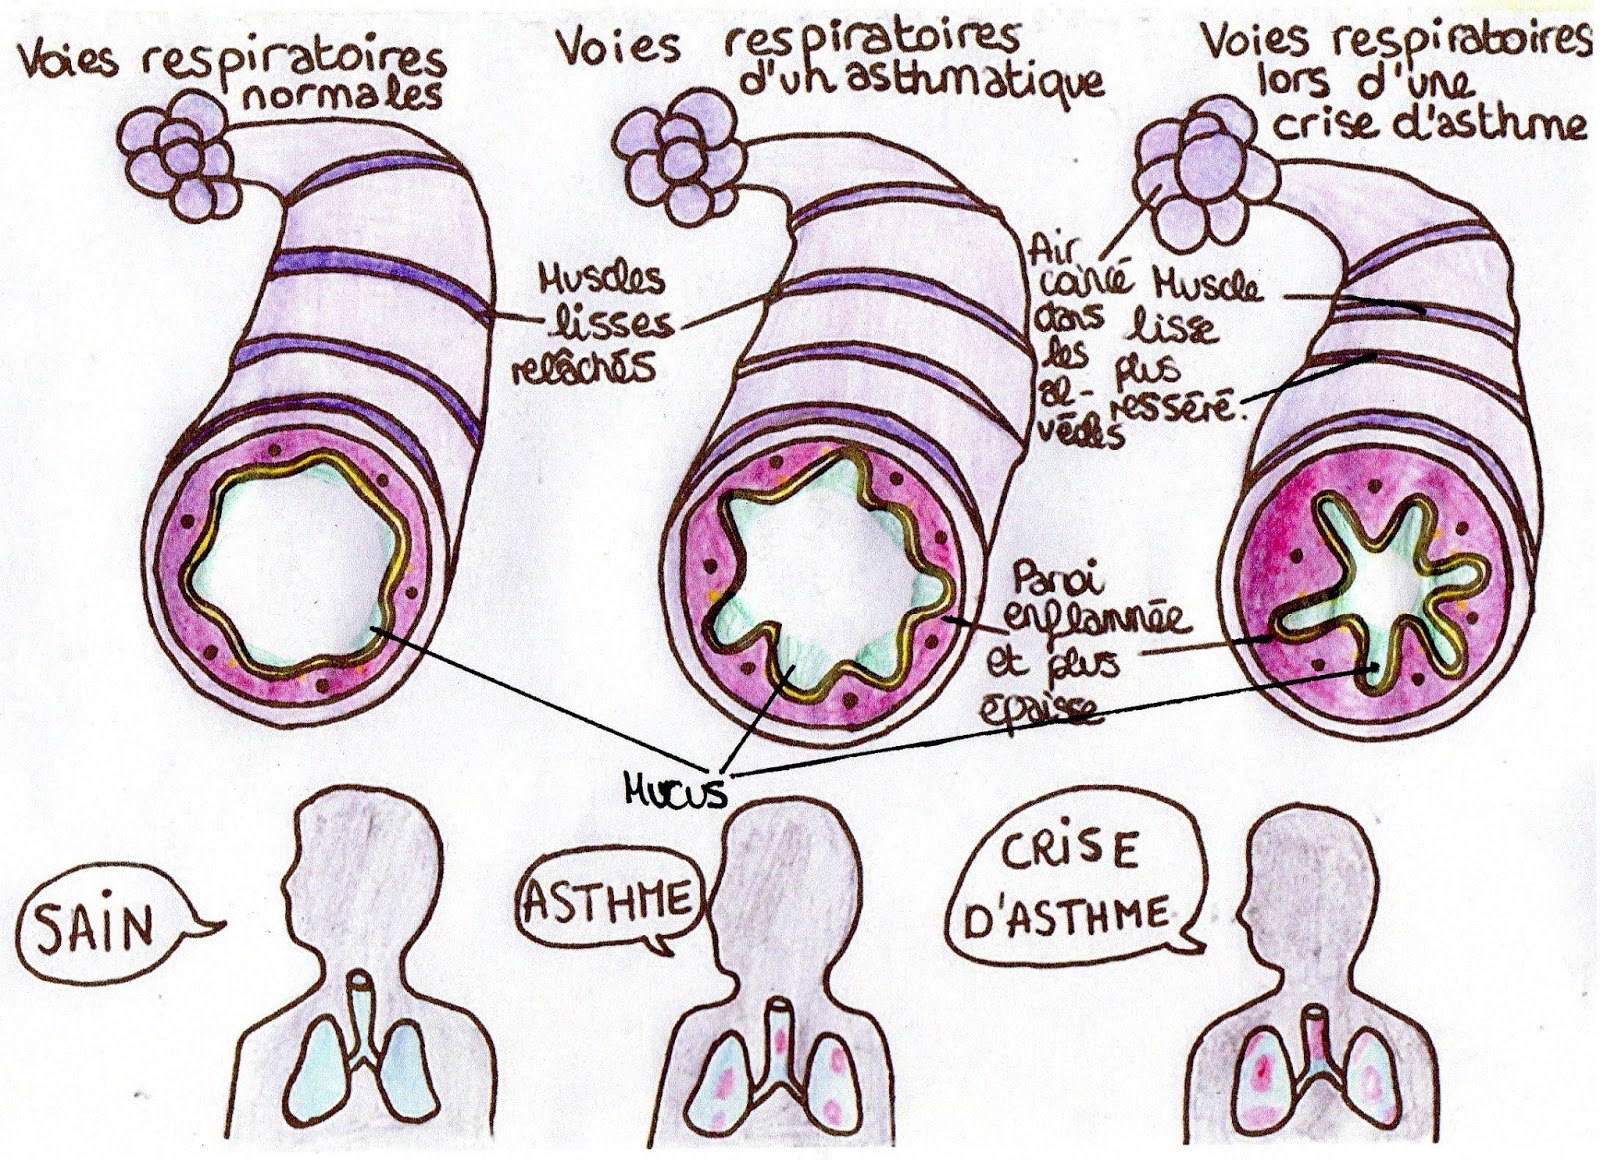 Voies respiratoires
normales
Voies respiratoires
d'un asthmatique
Voies respiratoires
lors d'une
crise d'asthme
Muscles
lisses
relâchés
Air
coincé
dans
les
al-
véoles
Muscle
lisse
plus
resséré.
Paroi
enflammée
et plus
épaisse
Mucus
SAIN
ASTHME
CRISE
D'ASTHME